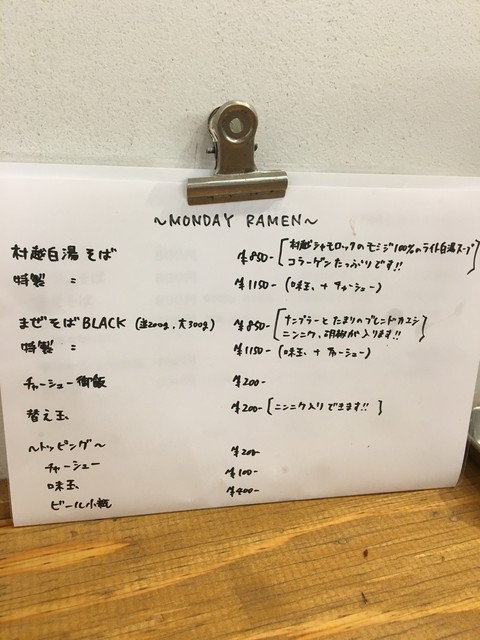 ～MONDAY RAMEN～
村越白湯そば ¥850- [村越シャモロックのモミジ100%のライト白湯スープ
コラーゲンたっぷりです!!]
特製 〃 ¥1150- (味玉、+チャーシュー)
まぜそばBLACK (並200g、大300g) ¥850- [ナンプラーとたまりのブレンドカエシ
ニンニク、胡椒が入ります!!]
特製 〃 ¥1150- (味玉 + チャーシュー)
チャーシュー御飯 ¥200-
替え玉 ¥200- [ニンニク入りできます!!]
～トッピング～ ¥200-
チャーシュー ¥100-
味玉 ¥400-
ビール小瓶